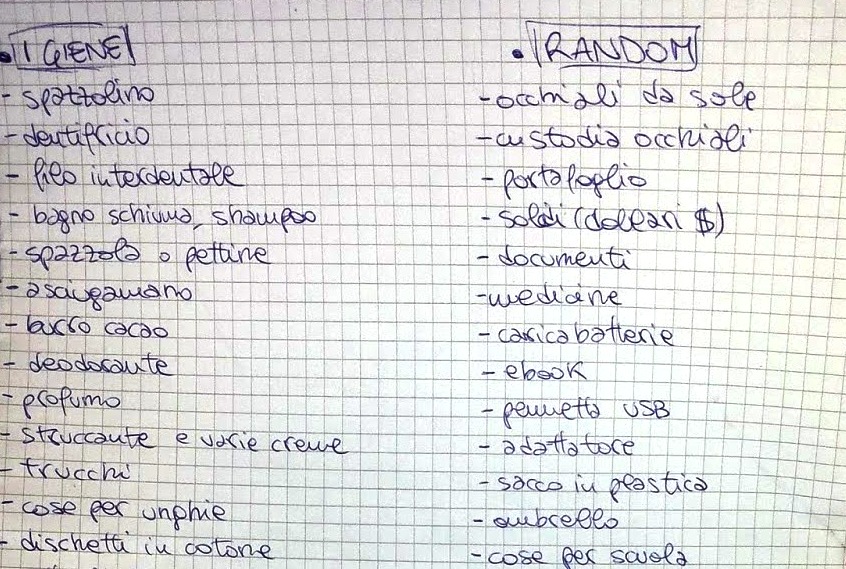 • IGIENE
- spazzolino
- dentifricio
- filo interdentale
- bagno schiuma, shampoo
- spazzola o pettine
- asciugamano
- burro cacao
- deodorante
- profumo
- struccante e varie creme
- trucchi
- cose per unghie
- dischetti in cotone
• RANDOM
- occhiali da sole
- custodia occhiali
- portafoglio
- soldi (dollari $)
- documenti
- medicine
- caricabatterie
- ebook
- pennetta USB
- adattatore
- sacco in plastica
- ombrello
- cose per scuola